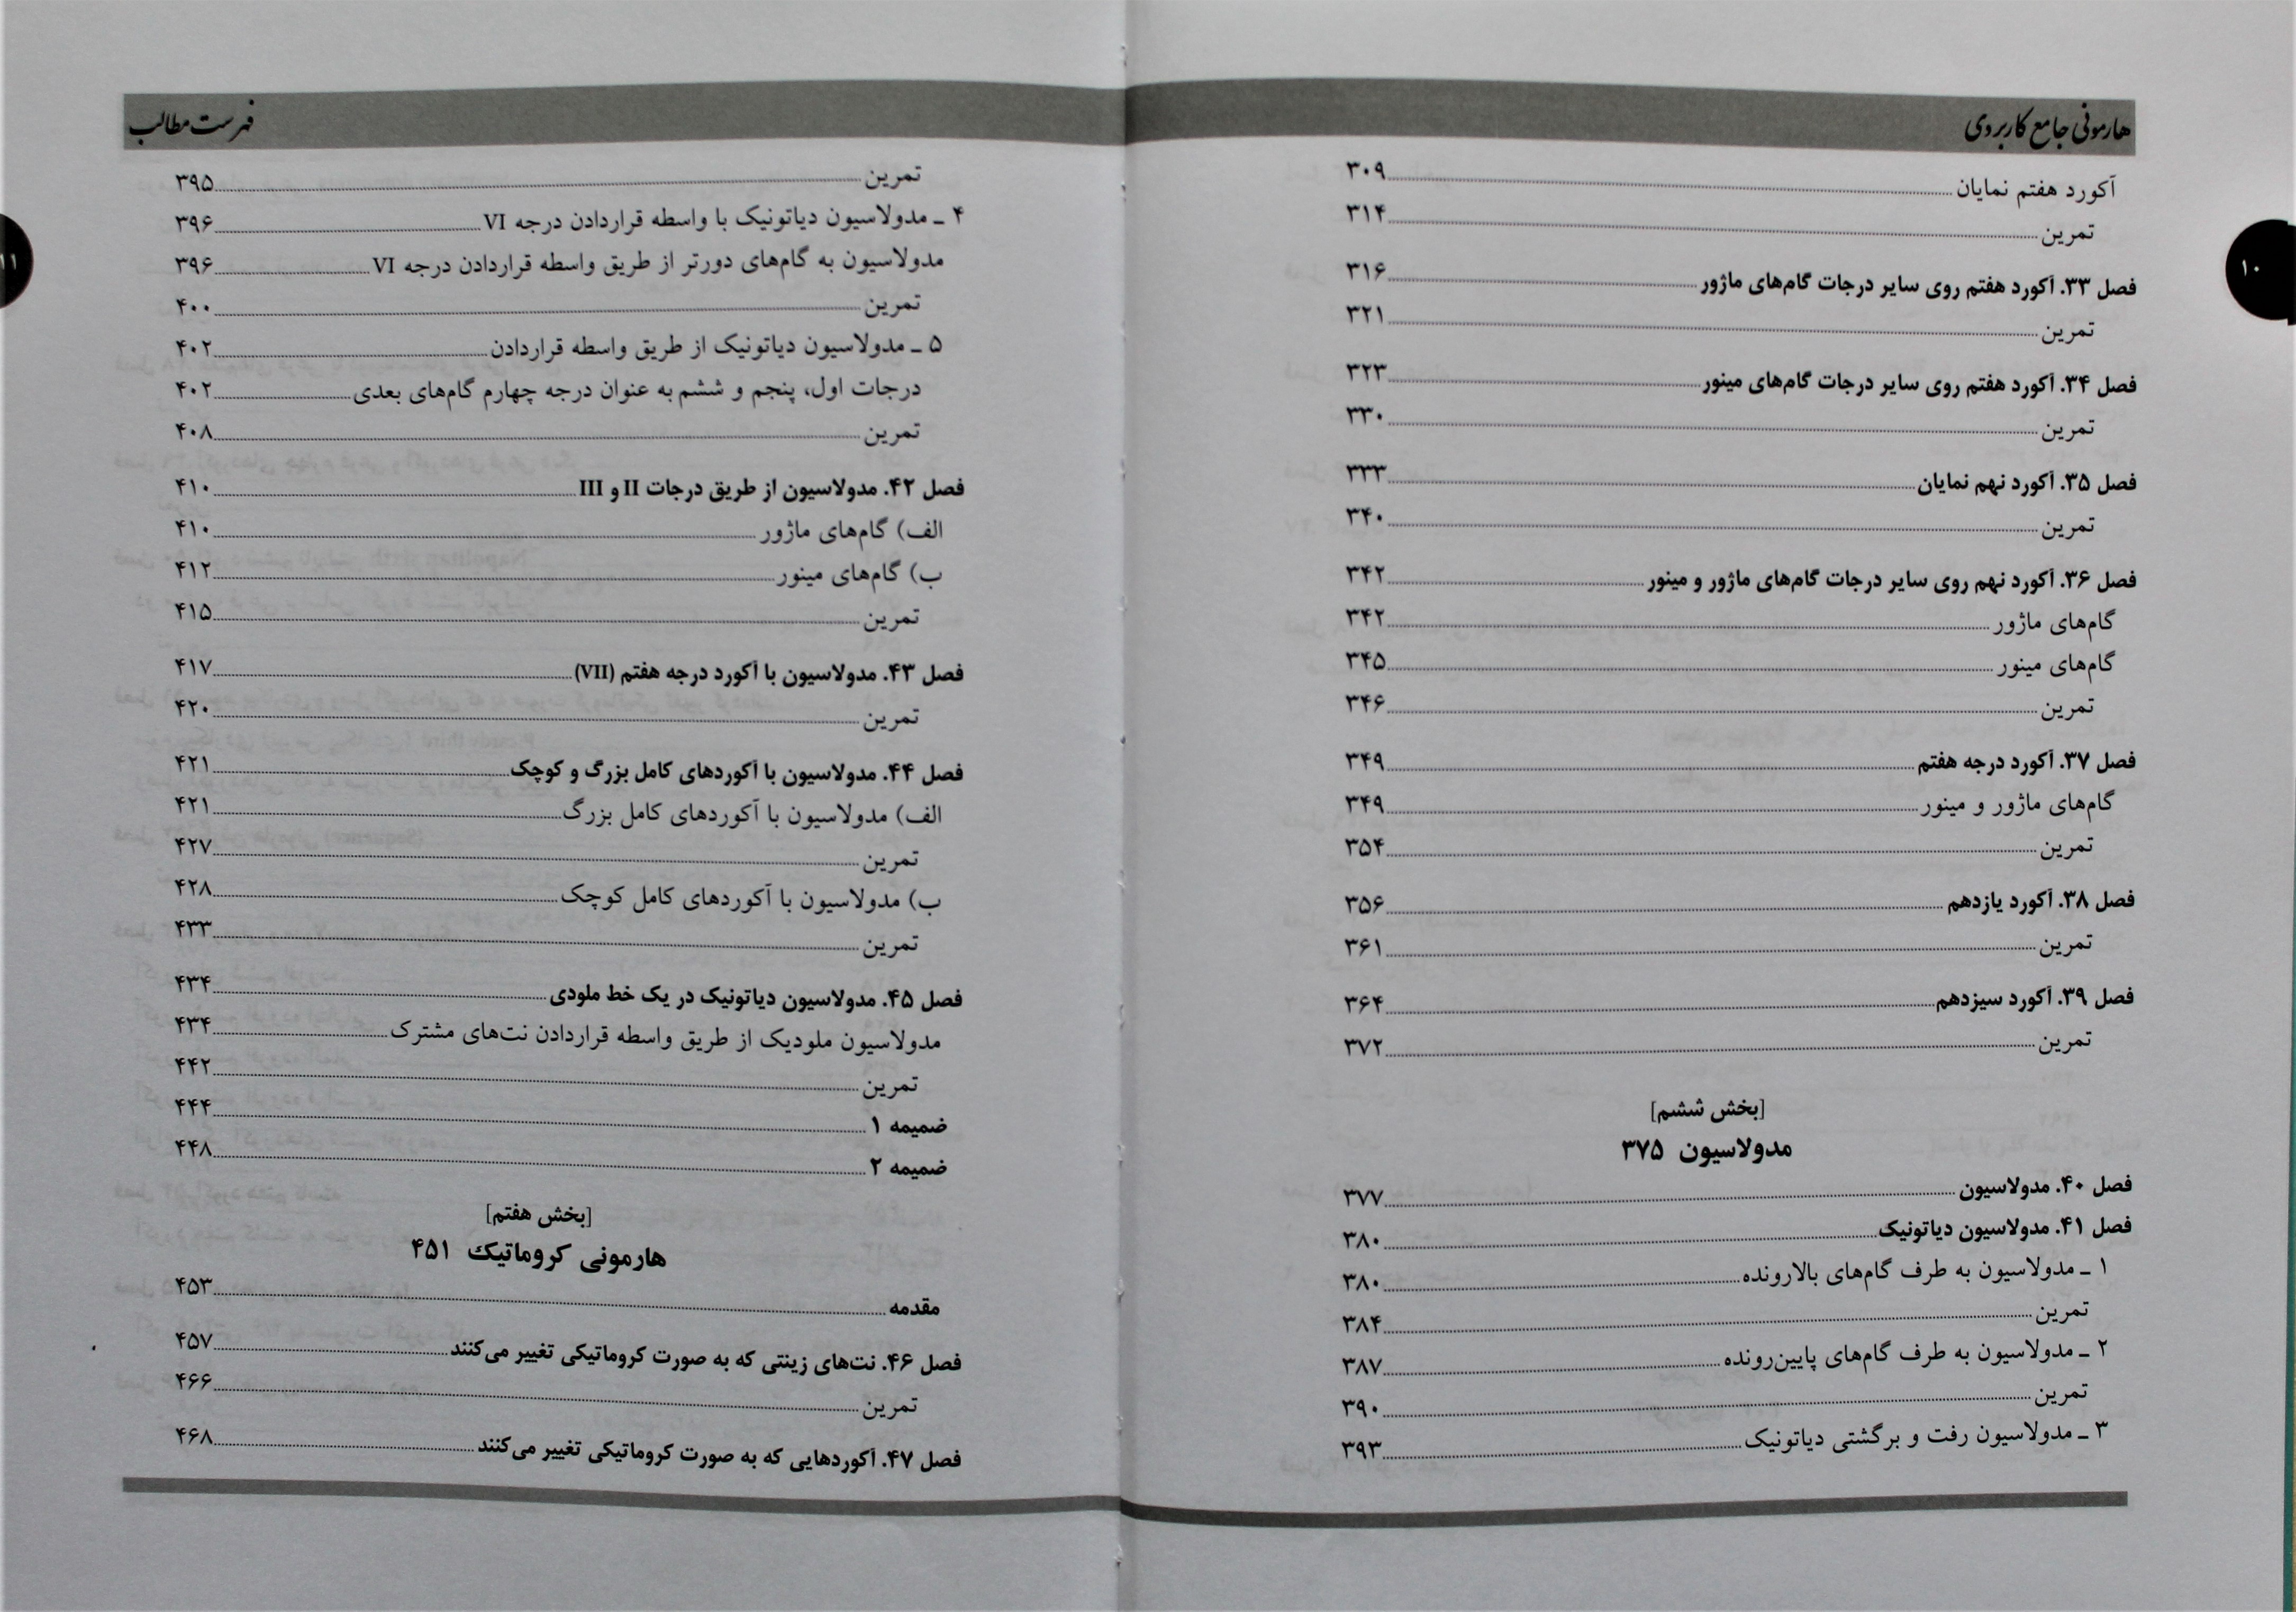 هارمونی جامع کاربردی
۱۰
آکورد هفتم نمایان ۳۰۹
تمرین ۳۱۴
فصل ۳۳. آکورد هفتم روی سایر درجات گام‌های ماژور ۳۱۶
تمرین ۳۲۱
فصل ۳۴. آکورد هفتم روی سایر درجات گام‌های مینور ۳۲۳
تمرین ۳۳۰
فصل ۳۵. آکورد نهم نمایان ۳۳۳
تمرین ۳۴۰
فصل ۳۶. آکورد نهم روی سایر درجات گام‌های ماژور و مینور ۳۴۲
گام‌های ماژور ۳۴۲
گام‌های مینور ۳۴۵
تمرین ۳۴۶
فصل ۳۷. آکورد درجه هفتم ۳۴۹
گام‌های ماژور و مینور ۳۴۹
تمرین ۳۵۴
فصل ۳۸. آکورد یازدهم ۳۵۶
تمرین ۳۶۱
فصل ۳۹. آکورد سیزدهم ۳۶۴
تمرین ۳۷۲
[بخش ششم]
مدولاسیون ۳۷۵
فصل ۴۰. مدولاسیون ۳۷۷
فصل ۴۱. مدولاسیون دیاتونیک ۳۸۰
۱ ـ مدولاسیون به طرف گام‌های بالارونده ۳۸۰
تمرین ۳۸۴
۲ ـ مدولاسیون به طرف گام‌های پایین‌رونده ۳۸۷
تمرین ۳۹۰
۳ ـ مدولاسیون رفت و برگشتی دیاتونیک ۳۹۳
فهرست مطالب
۱۱
تمرین ۳۹۵
۴ ـ مدولاسیون دیاتونیک با واسطه قراردادن درجه VI ۳۹۶
مدولاسیون به گام‌های دورتر از طریق واسطه قراردادن درجه VI ۳۹۶
تمرین ۴۰۰
۵ ـ مدولاسیون دیاتونیک از طریق واسطه قراردادن ۴۰۲
درجات اول، پنجم و ششم به عنوان درجه چهارم گام‌های بعدی ۴۰۲
تمرین ۴۰۸
فصل ۴۲. مدولاسیون از طریق درجات II و III ۴۱۰
الف) گام‌های ماژور ۴۱۰
ب) گام‌های مینور ۴۱۲
تمرین ۴۱۵
فصل ۴۳. مدولاسیون با آکورد درجه هفتم (VII) ۴۱۷
تمرین ۴۲۰
فصل ۴۴. مدولاسیون با آکوردهای کامل بزرگ و کوچک ۴۲۱
الف) مدولاسیون با آکوردهای کامل بزرگ ۴۲۱
تمرین ۴۲۷
ب) مدولاسیون با آکوردهای کامل کوچک ۴۲۸
تمرین ۴۳۳
فصل ۴۵. مدولاسیون دیاتونیک در یک خط ملودی ۴۳۴
مدولاسیون ملودیک از طریق واسطه قراردادن نت‌های مشترک ۴۳۴
تمرین ۴۴۲
ضمیمه ۱ ۴۴۴
ضمیمه ۲ ۴۴۸
[بخش هفتم]
هارمونی کروماتیک ۴۵۱
مقدمه ۴۵۳
فصل ۴۶. نت‌های زینتی که به صورت کروماتیکی تغییر می‌کنند ۴۵۷
تمرین ۴۶۶
فصل ۴۷. آکوردهایی که به صورت کروماتیکی تغییر می‌کنند ۴۶۸